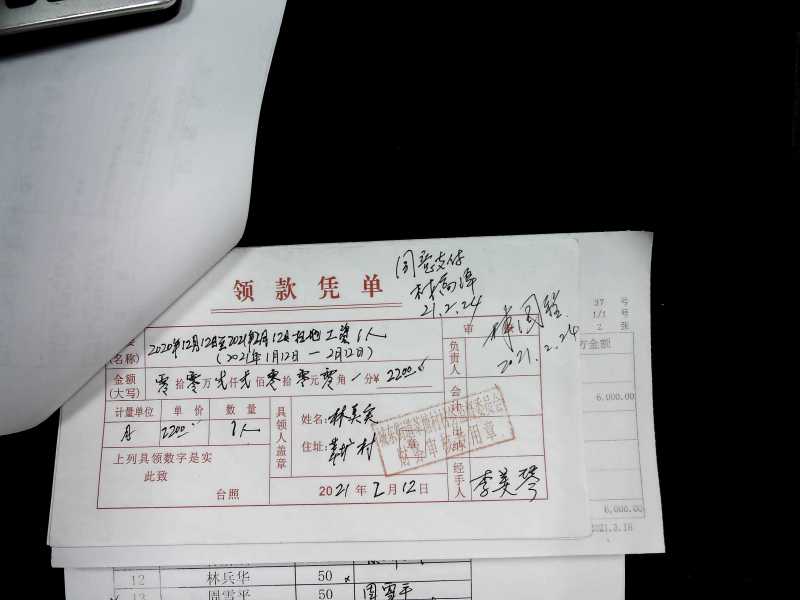 同意支付
21.2.24
领款凭单
2020年12月12日至2021年2月12日 工资1人
(名称)
(2021年1月12日—2月12日)
审
负责人
2021.2.24
金额
(大写)
零拾零万贰仟贰佰零拾零元零角/分¥ 2200.00
会计
计量单位 单价 数量
月 2200.00 1人
具领人盖章
姓名:林美宾
住址:
财务审核专用章
上列具领数字是实
此致
台照
2021年2月12日
经手人
李美琴
37 号
1/1 号
2 张
方金额
6,000.00
6,000.00
2021.3.18
12 林兵华 50
13 周雪平 50 周雪平